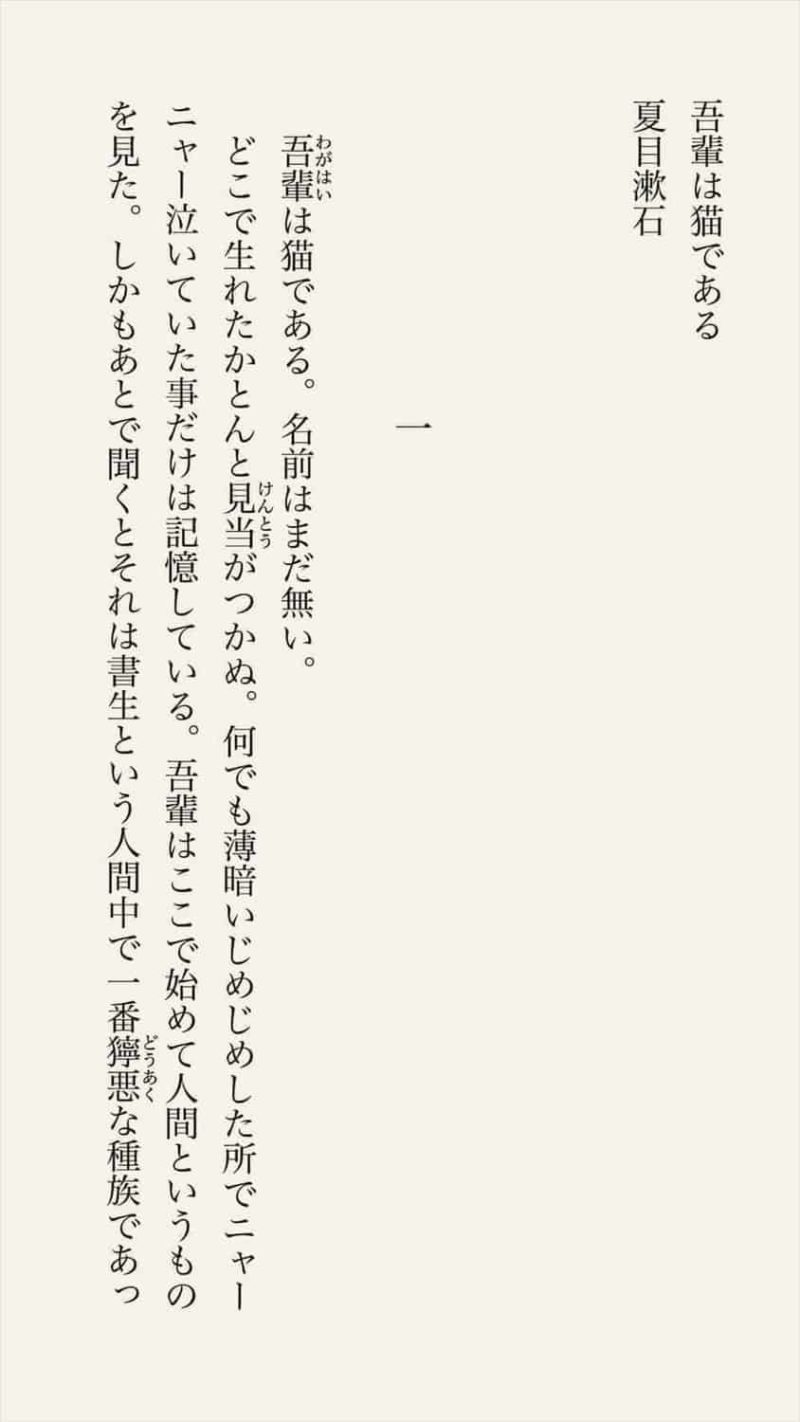 吾輩は猫である
夏目漱石
一
吾輩は猫である。名前はまだ無い。
どこで生れたかとんと見当がつかぬ。何でも薄暗いじめじめした所でニャー
ニャー泣いていた事だけは記憶している。吾輩はここで始めて人間というもの
を見た。しかもあとで聞くとそれは書生という人間中で一番獰悪な種族であっ
わがはい
けんとう
どうあく